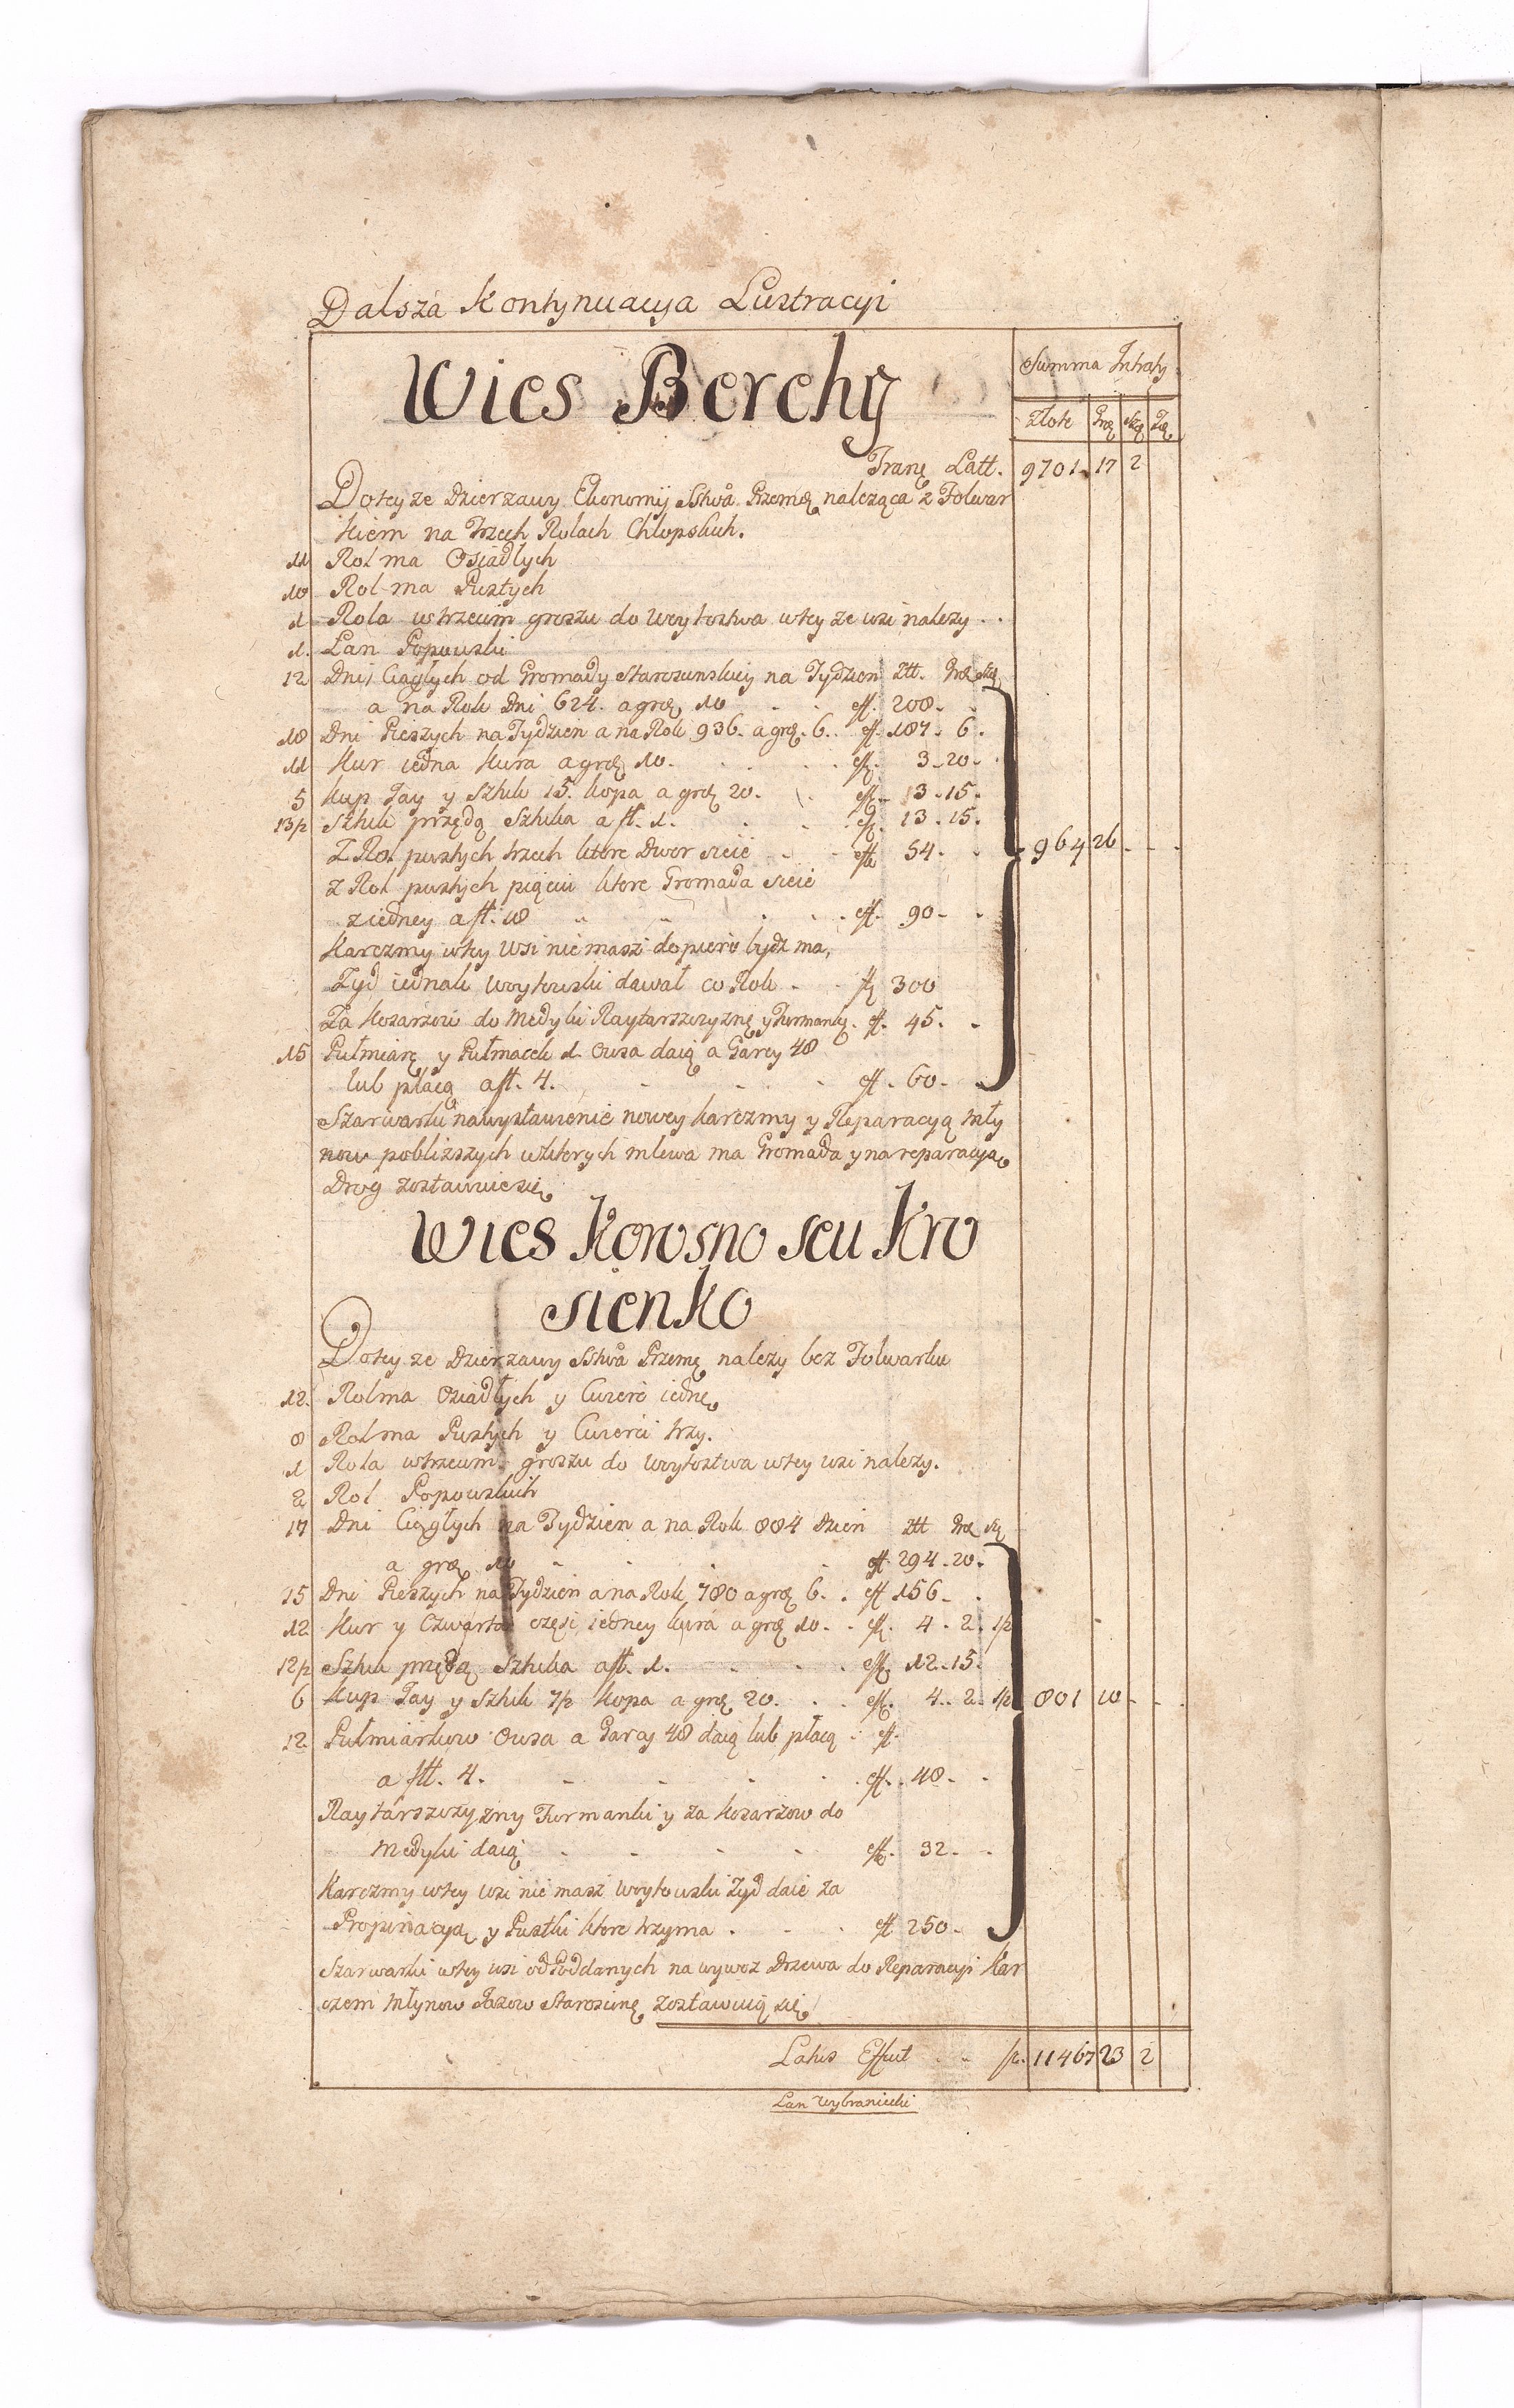 Dalsza Kontynuacya Lustracyi
Wies Berchy
Summa Intraty
Złote Grō Szę
Tranę Latt. 9701 17 2
Do tey ze Dzierzawy Ekonomij Sstwa Przemę należąca z Folwar
kiem na Trzech Rolach Chłopskich.
11 Rol ma Osiadłych
10 Rol ma Pustych
1 Rola w trzecim groszu do Woytostwa w tey ze wsi nalezy . .
1. Łan Popowski
12 Dni Ciągłych od Gromady Starzawskiey na Tydzien Ztt. Grō Szę
a na Rok Dni 624. a grō 10 . . eff. 208. .
18 Dni Pieszych na Tydzien a na Rok 936. a grō. 6. . eff. 187. 6.
11 Kur iedna Kura a grō 10. . . . eff. 3. 20.
5 Kup Jay y Sztuk 15. Kopa a grō 20. . eff. 13. 15.
13½ Sztuk przędą Sztuka a ft. 1. . . . eff. 13. 15.
Z Rol pustych trzech ktore Dwor sieie . . eff. 54. . 964 26
z Rol pustych pięciu ktore Gromada sieie
z iedney a ft. 18 . . . . eff. 90. .
Karczmy w tey Wsi nie masz dopiero bydz ma,
Zyd iednak Woytowski dawał co Rok . . ft 300
Za Kozarzow do Medyki Raytarszczyznę y Furmankę. ft. 45. .
15 Pułmiarę y Pułmacek 1. Owsa daią a Garcy 48
lub płacą a ft. 4. . . . eff. 60. .
Szarwarku na wystawienie nowey karczmy y Reparacyą Mły
now poblizszych w ktorych mlewa ma Gromada y na reparacyą
Drog zostawuie się
Wies Korosno seu Kro
sienko
Do tey ze Dzierzawy Sstwa Przemę nalezy bez Folwarku
12. Rol ma Osiadłych y Cwierc iednę
8 Rol ma Pustych y Cwierci trzy.
1 Rola w trzecim groszu do Woytostwa w tey wsi nalezy.
2 Rol Popowskich
17 Dni Ciągłych na Tydzien a na Rok 884 Dzien Ztt Grō Szę
a grō 10 . . . . eff. 294. 20.
15 Dni Pieszych na Tydzien a na Rok 780 a grō 6. . eff 156. .
12 Kur y Czwarta częsc iedney kura a grō 10. . eff. 4. 2. ½
12½ Sztuk przędą Sztuka a ft. 1. . . . eff. 12. 15.
6 Kup Jay y sztuk 7½ Kopa a grō 20. . . eff. 4. 2. ½ 801 10
12 Pułmiarkow Owsa a Garcy 48 daią lub płacą . ff.
a ftt. 4. . . . . eff. 48. .
Raytarszczyzny Furmanki y za Kozarzow do
Medyki daią . . . . eff. 32. .
Karczmy w tey wsi nie masz Woytowski Zyd daie za
Propinacyą y Pustki ktore trzyma . . . eff 250.
Szarwarki w tey wsi od Poddanych na wywoz Drzewa do Reparacyi Kar
czem Młynow Jazow Staroscinę zostawuią się
Latus Effut . . ft. 11467 23 2
Łan Wybraniecki